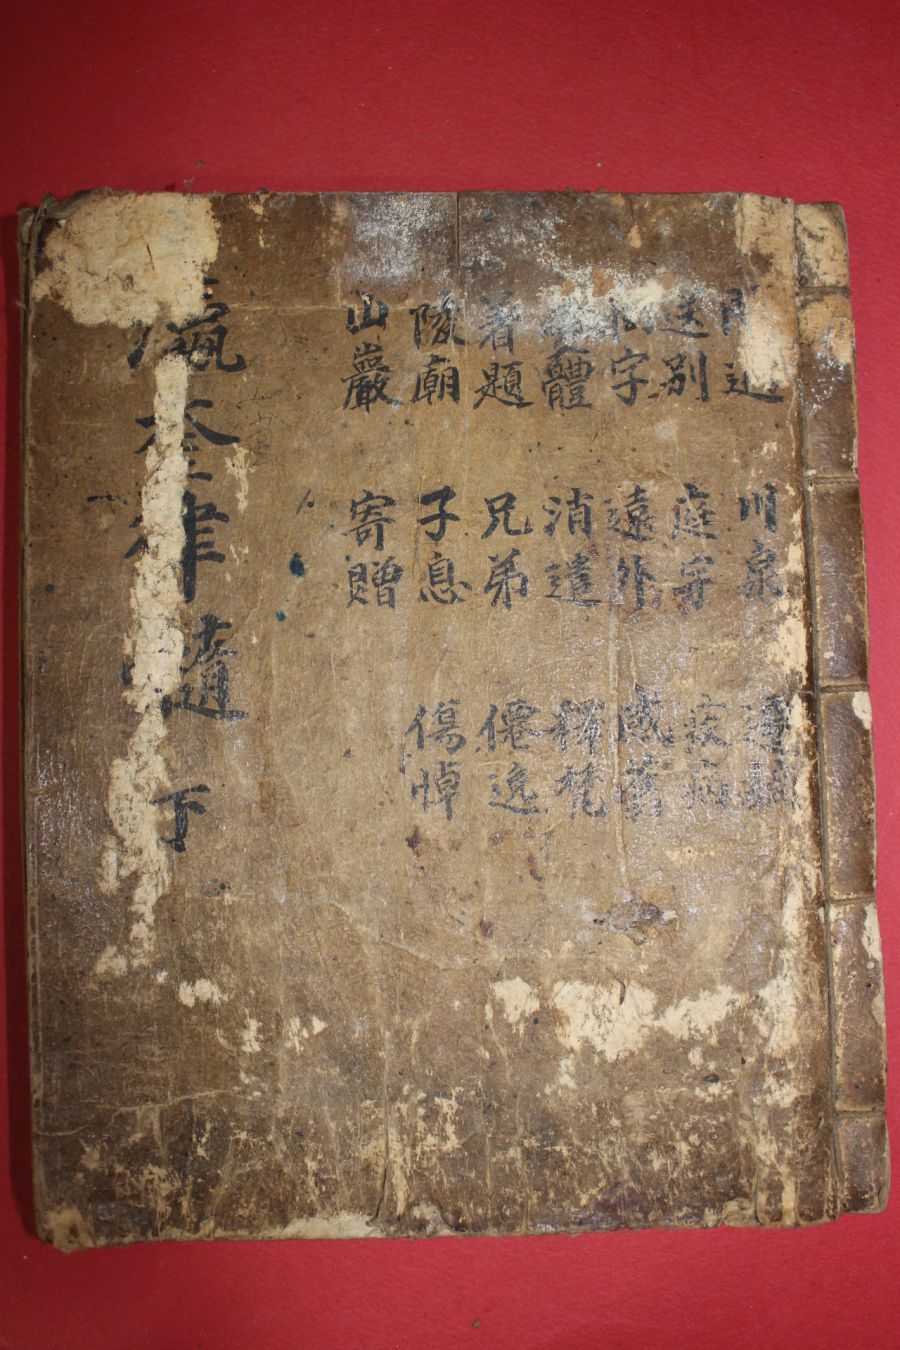 閒適
送別
拗字
變體
着題
陵廟
山巖
川泉
庭宇
遠外
消遣
兄弟
子息
寄贈
遷謫
疾病
感舊
釋梵
僊逸
傷悼
瀛奎律髓 下